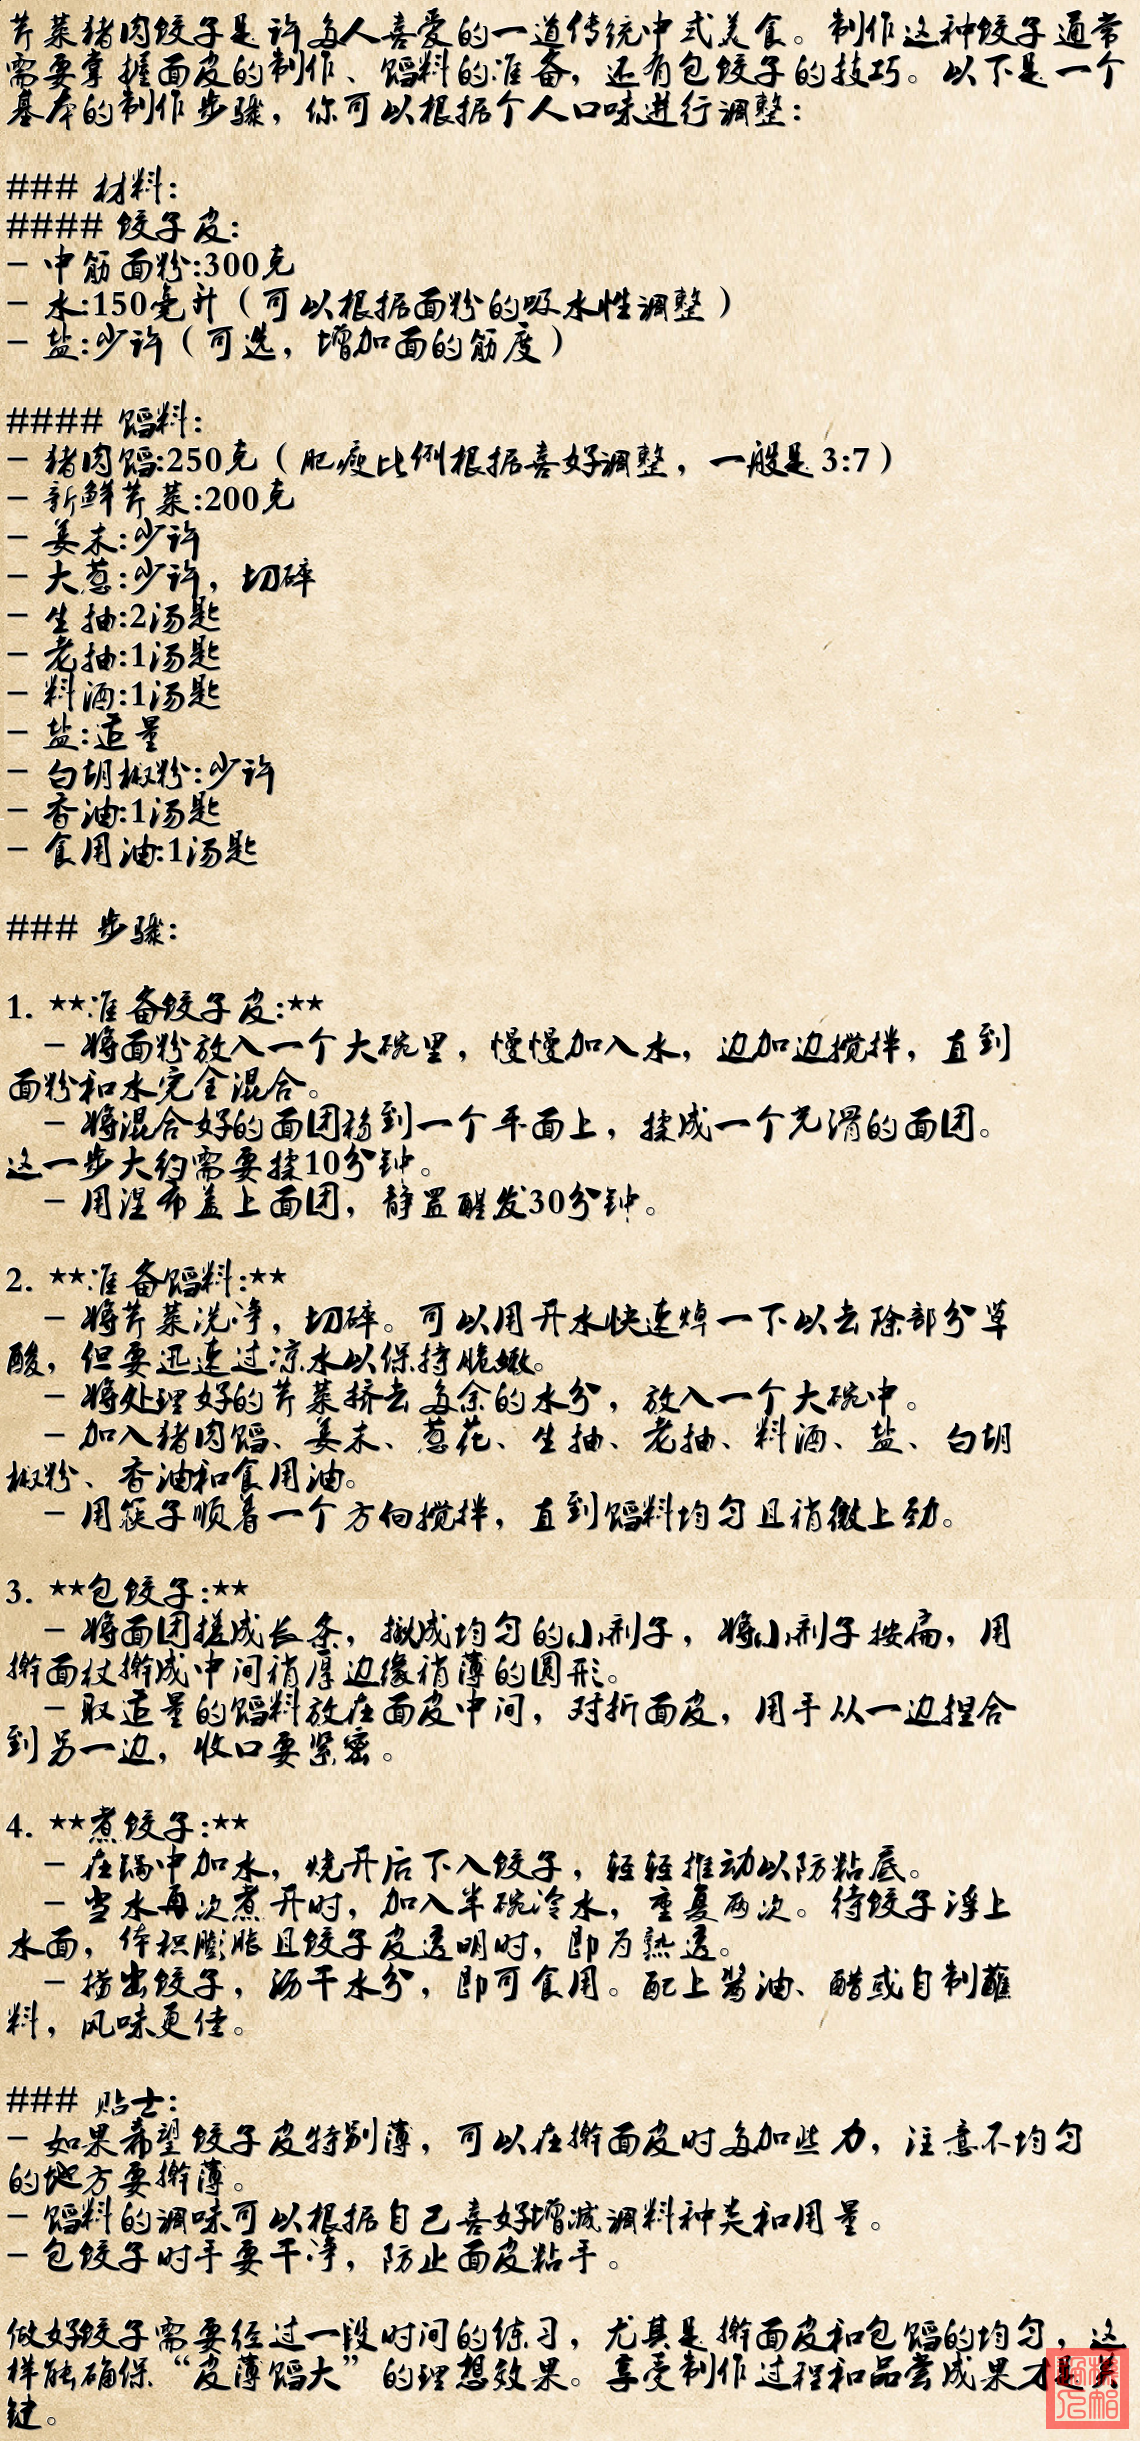 芹菜猪肉饺子是许多人喜爱的一道传统中式美食。制作这种饺子通常
需要掌握面皮的制作、馅料的准备，还有包饺子的技巧。以下是一个
基本的制作步骤，你可以根据个人口味进行调整：
### 材料：
#### 饺子皮：
- 中筋面粉:300克
- 水:150毫升（可以根据面粉的吸水性调整）
- 盐:少许（可选，增加面的筋度）
#### 馅料：
- 猪肉馅:250克（肥瘦比例根据喜好调整，一般是3:7）
- 新鲜芹菜:200克
- 姜末:少许
- 大葱:少许，切碎
- 生抽:2汤匙
- 老抽:1汤匙
- 料酒:1汤匙
- 盐:适量
- 白胡椒粉:少许
- 香油:1汤匙
- 食用油:1汤匙
### 步骤：
1. **准备饺子皮:**
- 将面粉放入一个大碗里，慢慢加入水，边加边搅拌，直到
面粉和水完全混合。
- 将混合好的面团移到一个平面上，揉成一个光滑的面团。
这一步大约需要揉10分钟。
- 用湿布盖上面团，静置醒发30分钟。
2. **准备馅料:**
- 将芹菜洗净，切碎。可以用开水快速焯一下以去除部分草
酸，但要迅速过凉水以保持脆嫩。
- 将处理好的芹菜挤去多余的水分，放入一个大碗中。
- 加入猪肉馅、姜末、葱花、生抽、老抽、料酒、盐、白胡
椒粉、香油和食用油。
- 用筷子顺着一个方向搅拌，直到馅料均匀且稍微上劲。
3. **包饺子:**
- 将面团搓成长条，揪成均匀的小剂子，将小剂子按扁，用
擀面杖擀成中间稍厚边缘稍薄的圆形。
- 取适量的馅料放在面皮中间，对折面皮，用手从一边捏合
到另一边，收口要紧密。
4. **煮饺子:**
- 在锅中加水，烧开后下入饺子，轻轻推动以防粘底。
- 当水再次煮开时，加入半碗冷水，重复两次。待饺子浮上
水面，体积膨胀且饺子皮透明时，即为熟透。
- 捞出饺子，沥干水分，即可食用。配上酱油、醋或自制蘸
料，风味更佳。
### 贴士：
- 如果希望饺子皮特别薄，可以在擀面皮时多加些力，注意不均匀
的地方要擀薄。
- 馅料的调味可以根据自己喜好增减调料种类和用量。
- 包饺子时手要干净，防止面皮粘手。
做好饺子需要经过一段时间的练习，尤其是擀面皮和包馅的均匀，这
样能确保“皮薄馅大”的理想效果。享受制作过程和品尝成果才是关
键。